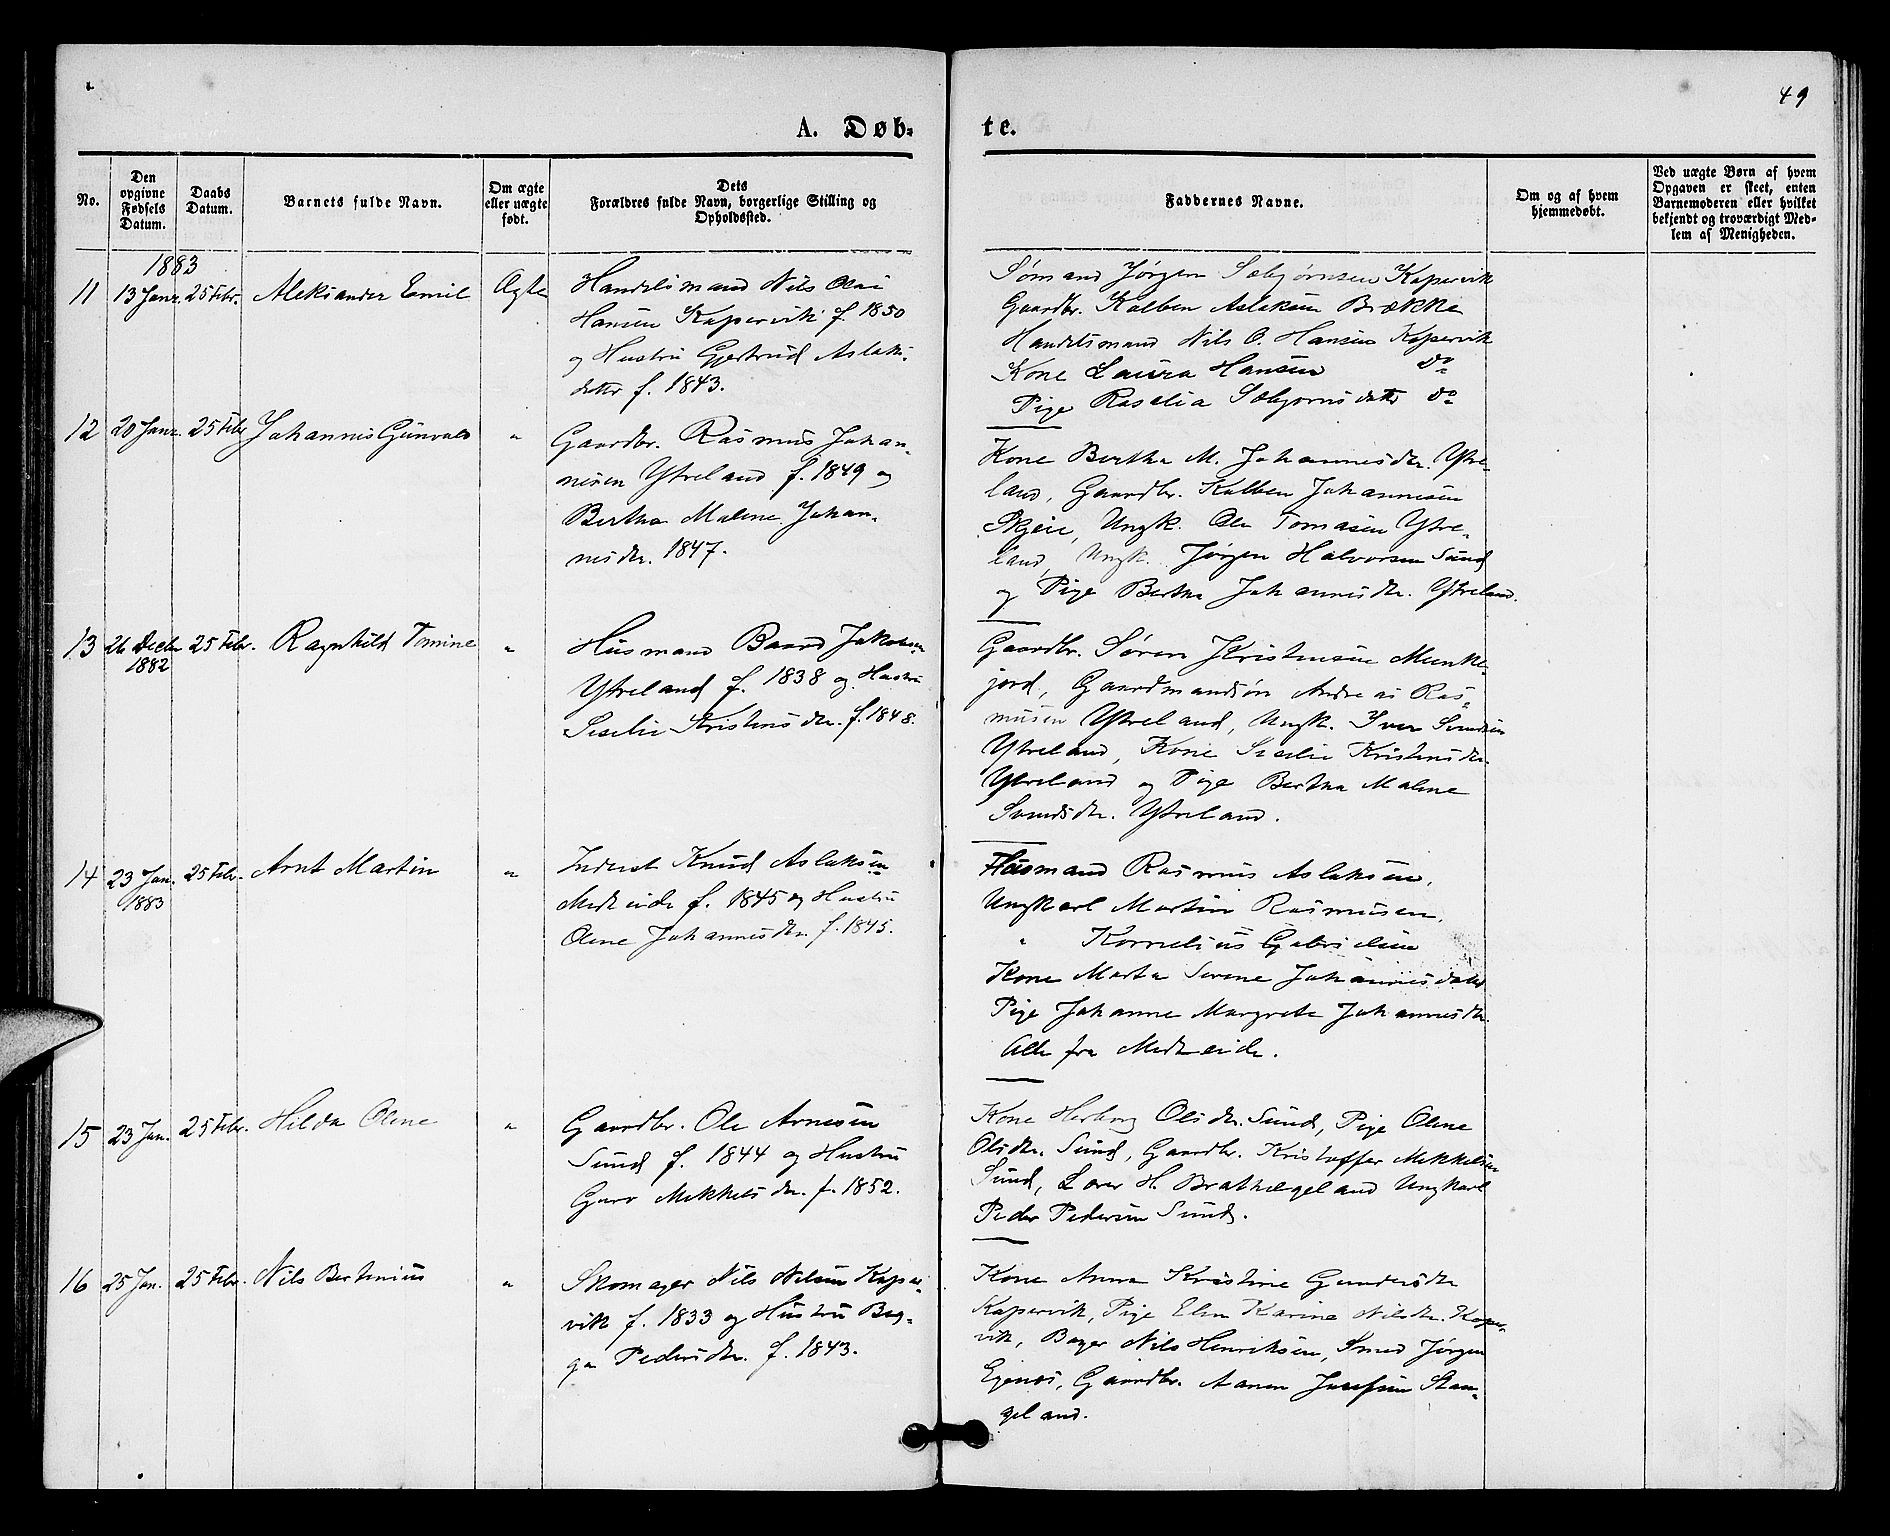 49
A. Døb-te.
No.
Den
opgivne
Fødsels
Datum.
Daabs
Datum.
Barnets fulde Navn.
Om ægte
eller uægte
født.
Dets
Forældres fulde Navn, borgerlige Stilling og
Opholdssted.
Faddernes Navne.
Om og af hvem
hjemmedøbt.
Ved uægte Børn af hvem
Opgaven er skeet, enten
Barnemoderen eller hvilket
bekjendt og troværdigt Med-
lem af Menigheden.
1883
11 13 Janr. 25 Febr. Aleksander Emil Ægte
Handelsmand Nils Olai
Hansen Kopervik f. 1850
og Hustru Gjertrud Aslaks-
datter f. 1843.
Sømand Jørgen Sæbjørnsen Kopervik
Gaardbr. Kolben Aslaksen Brække
Handelsmand Nils O. Hansen Kopervik
Kone Laura Hansen do
Pige Roselia Sæbjørnsdatter do
12 20 Janr. 25 Febr Johannes Gunvald "
Gaardbr. Rasmus Johan-
nesen Ytreland f. 1849 og
Bertha Malene Johan-
nesdtr. 1847.
Kone Bertha M. Johannesdtr. Ytre-
land, Gaardbr. Kolben Johannesen
Skjeie, Ungk. Ole Tomasen Ytre-
land, Ungk. Jørgen Halvorsen Sund
og Pige Bertha Johannesdtr. Ytreland.
13 26 Decbr 1882 25 Febr. Ragnhild Tomine "
Husmand Baard Jakobsen
Ytreland f. 1838 og Hustru
Seselie Kristensdtr. f. 1848.
Gaardbr. Søren Kristensen Munke-
jord, Gaardmandsøn Andreas Ras-
musen Ytreland, Ungk. Iver Svendsen
Ytreland, Kone Seselie Kristensdtr.
Ytreland og Pige Bertha Malene
Svendsdtr. Ytreland.
14 23 Jan. 1883 25 Febr. Arnt Martin "
Inderst Knud Aslaksen
Medheide f. 1845 og Hustru
Olene Johannesdtr. f. 1845.
Husmand Rasmus Aslaksen,
Ungkarl Martin Rasmusen,
" Kornelius Gabrielsen
Kone Marta Serene Johannesdatter
Pige Johanne Margrete Johannesdtr.
Alle fra Medheide.
15 23 Jan. 25 Febr. Hilda Olene "
Gaardbr. Ole Arnesen
Sund f. 1844 og Hustru
Guro Mekkelsdtr. f. 1852.
Kone Herborg Olsdtr. Sund, Pige Olene
Olsdtr. Sund, Gaardbr. Kristoffer Mekkelsen
Sund, Lærer H. Brathægeland Ungkarl
Peder Pedersen Sund.
16 25 Jan. 25 Febr. Nils Bertinius "
Skomager Nils Nilsen Koper-
vik f. 1833 og Hustru Beg-
ga Pedersdtr. f. 1843.
Kone Anna Kristine Gundersdtr
Kopervik, Pige Elen Karine Nilsdtr. Koper-
vik, Bager Nils Henriksen, Smed Jørgen
Egenes, Gaardbr. Aanen Josefsen Stan-
geland.